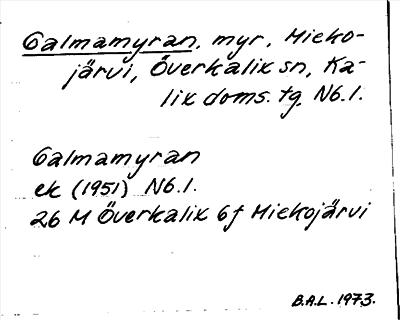 Galmamyran, myr, Mieko-
järvi, Överkalix sn, Ka-
lix doms. tg. Nb. l.
Galmamyran
ek (1951) Nb. l.
26 M Överkalix 6 f Miekojärvi
B.A.L. 1973.